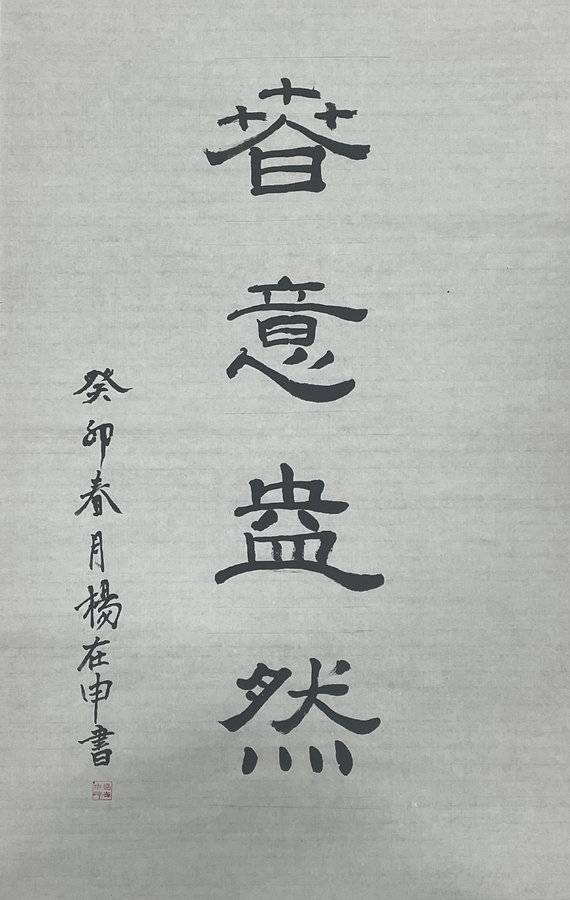 春意盎然
癸卯春月楊在申書